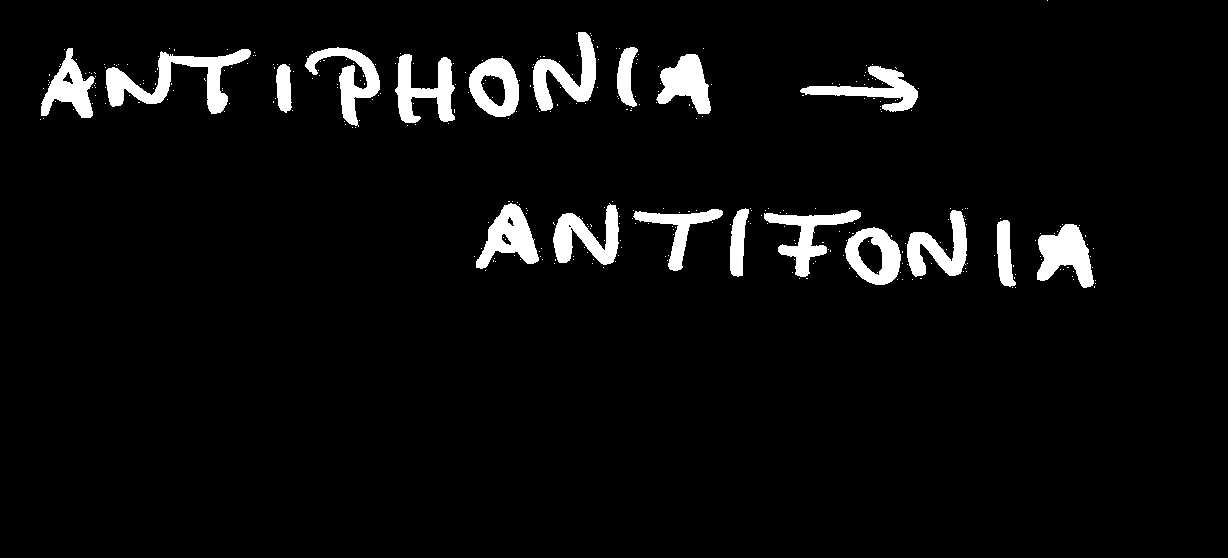 ANTIPHONIA →
ANTIFONIA